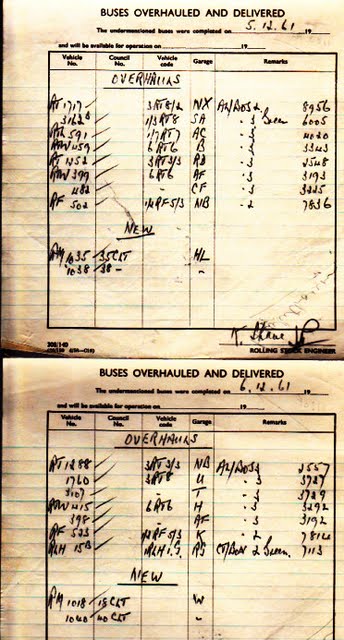 BUSES OVERHAULED AND DELIVERED
The undermentioned buses were completed on 5.12.61 19
and will be available for operation on 19
Vehicle No. Council No. Vehicle code Garage Remarks
OVERHAULS
RT 1717 3RT8/2 NX AE/BOS 2 8956
3162 1/3RT8 SA " 3 Green 6005
RTL 591 1/7RT7 AC " 3 4020
RTW 459 6RT6 B " 3 3343
RT 1252 3RT3/3 RD " 3 2548
RTW 399 6RT6 AF " 3 3193
482 " CF " 3 3225
RF 502 1/2RF5/3 NB " 2 7836
NEW
RM 1035 35CLT HL
1038 38 - "
205/140
ROLLING STOCK ENGINEER
BUSES OVERHAULED AND DELIVERED
The undermentioned buses were completed on 6.12.61 19
and will be available for operation on 19
Vehicle No. Council No. Vehicle code Garage Remarks
OVERHAULS
RT 1288 3RT3/3 NB 2557
1760 3RT8 U " 3 3727
3107 " T " 3 3729
RTW 415 6RT6 H " 3 3292
398 " AF " 3 3192
RF 523 1/2RF5/3 K " 2 7814
RLH 15 RG Green 7113
NEW
RM 1018 18CLT W
1040 40 CLT "